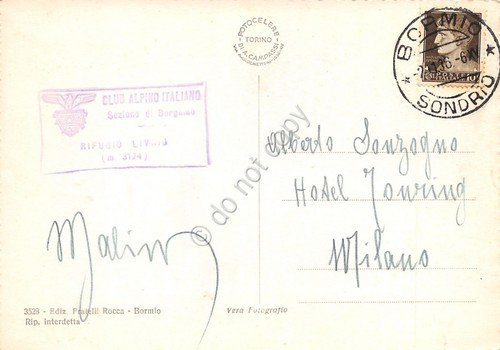 FOTOCELERE
TORINO
DI A. CAMPASSI
BORMIO
SONDRIO
CLUB ALPINO ITALIANO
Sezione di Bergamo
RIFUGIO LIVRIO
(m. 3174)
Alberto Sonzogno
Hotel Touring
Milano
© do not copy
3528 - Ediz Fratelli Rocca - Bormio
Rip. interdetta
Vera Fotografia